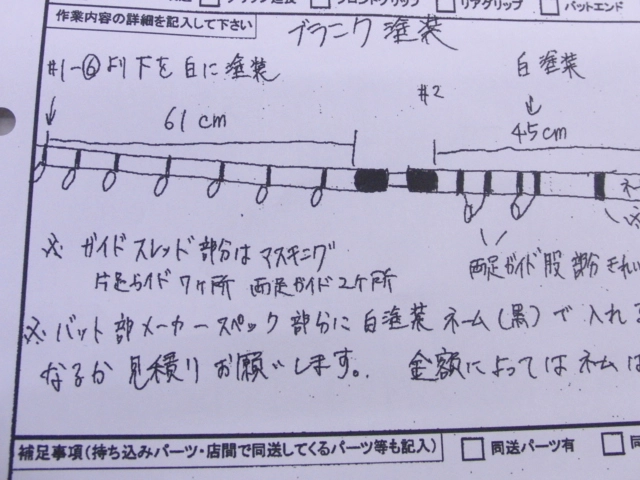 フロントグリップ □ リアグリップ □ バットエンド
作業内容の詳細を記入して下さい
ブランク塗装
#1-⑥より下を白に塗装
白塗装
#2
61cm
45cm
※ ガイドスレッド部分はマスキング
片足ガイド7ヶ所 両足ガイド2ヶ所
両足ガイド股部分きれい
※バット部メーカースペック部分に白塗装ネーム(黒)で入れる
なるか見積りお願いします。 金額によってはネームは
補足事項(持ち込みパーツ・店間で同送してくるパーツ等も記入) □ 同送パーツ有 □ 同